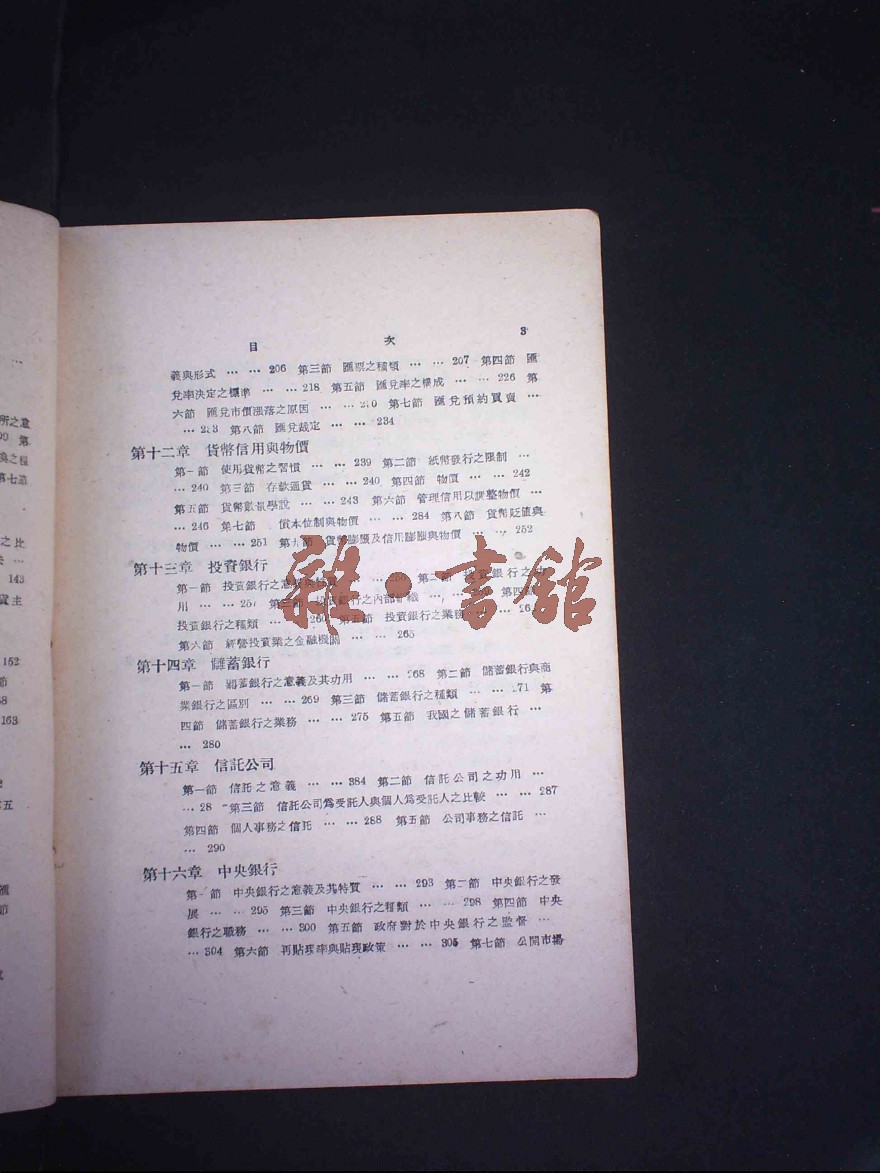 所之意
09 第
換之種
第七節
之比
143
152
節
163
五
目 次 3
義與形式 … … 206 第三節 匯票之種類 … … 207 第四節 匯
兌率決定之標準 … … 218 第五節 匯兌率之構成 … … 226 第
六節 匯兌市價漲落之原因 … … 第七節 匯兌預約買賣 …
… 第八節 匯兌裁定 … … 234
第十二章 貨幣信用與物價
第一節 使用貨幣之習慣 … … 239 第二節 紙幣發行之限制 …
… 240 第三節 存款通貨 … … 240 第四節 物價 … … 242
第五節 貨幣數量學說 … … 243 第六節 管理信用以調整物價 …
… 246 第七節 本位制與物價 … … 284 第八節 貨幣貶值與
物價 … … 251 第九節 貨幣膨脹及信用膨脹與物價 … … 252
第十三章 投資銀行
第一節 投資銀行之意義 … 256 第二節 投資銀行之功
用 … … 257 第三節 投資銀行之內部組織 … 第四節
投資銀行之種類 … … 260 第五節 投資銀行之業務
第六節 經營投資業之金融機關 … … 265
第十四章 儲蓄銀行
第一節 儲蓄銀行之意義及其功用 … … 268 第二節 儲蓄銀行與商
業銀行之區別 … … 269 第三節 儲蓄銀行之種類 … … 271 第
四節 儲蓄銀行之業務 … … 275 第五節 我國之儲蓄銀行 …
… 280
第十五章 信託公司
第一節 信託之意義 … … 384 第二節 信託公司之功用 …
… 28 第三節 信託公司爲受託人與個人爲受託人之比較 … … 287
第四節 個人事務之信託 … … 288 第五節 公司事務之信託 …
… 290
第十六章 中央銀行
第一節 中央銀行之意義及其特質 … … 293 第二節 中央銀行之發
展 … … 295 第三節 中央銀行之種類 … … 298 第四節 中央
銀行之職務 … … 300 第五節 政府對於中央銀行之監督 …
… 304 第六節 再貼現率與貼現政策 … … 305 第七節 公開市場
雜·書館